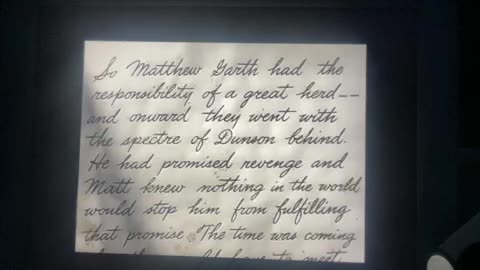 So Matthew Garth had the
responsibility of a great herd--
and onward they went with
the spectre of Dunson behind.
He had promised revenge and
Matt knew nothing in the world
would stop him from fulfilling
that promise. The time was coming